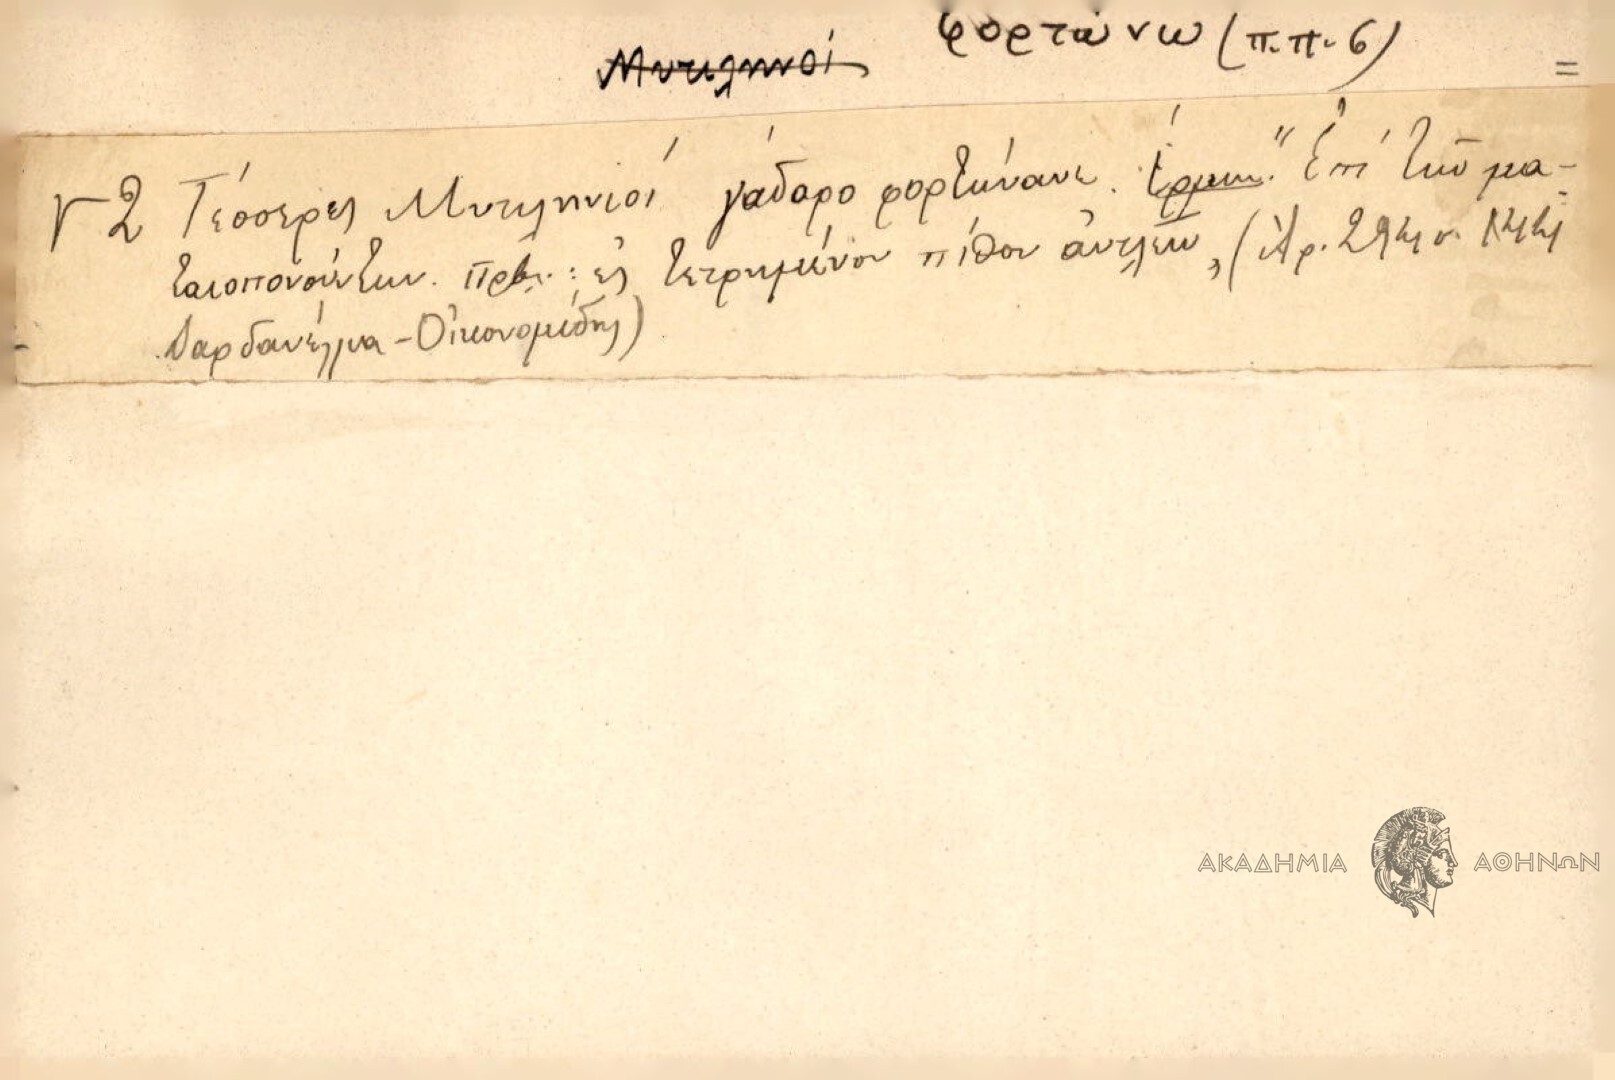 φορτώνω (π.π. 6)
Μυτιληνιοί
=
γ 2 Τέσσερες Μυτιληνιοί γάδαρο φορτώνανε. Ἑρμην. "Ἐπὶ τῶν μα-
ταιοπονούντων. Πρβ.: εἰς τετρημένον πίθον ἀντλεῖν, (Ἀρ.
Δαρδανέλλια - Οἰκονομίδης)
ΑΚΑΔΗΜΙΑ ΑΘΗΝΩΝ